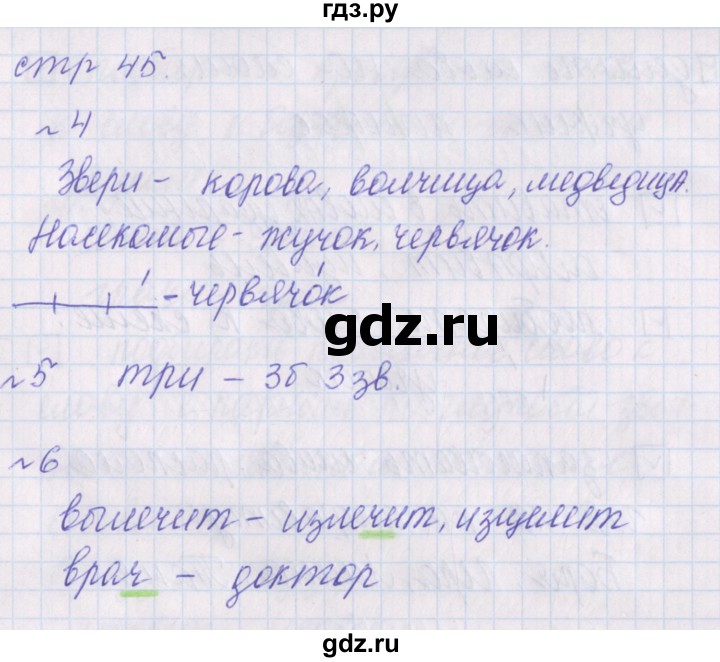 гдз.ру
стр 45.
№4
Звери - корова, волчица, медведица.
Насекомые - жучок, червячок.
- червячо́к
gdz.ru
№5 три - 3б 3 зв.
№6
вылечит - излечит, исцелит
врач - доктор
gdz.ru